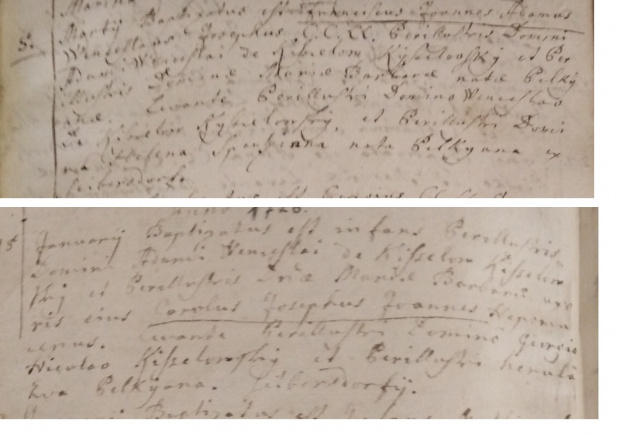 5.
Martij Baptizatus est Franciscus Joannes Adamus
Wenceslaus Josephus C. C. L. Perillustris Domini
Adami Wenceslai de Kisselow Kysselowsky et Per
illustris Dominæ Mariæ Barbaræ natæ Pelky
Levante Perillustri Domino Venceslao
de Kisselow Kysselowsky, et Perillustri Domi
na nata Pelkyana ex
Leibersdorf
15 Januarij Baptizatus est infans Perillustris
Domini Adami Venceslai de Kisselow Kisselow
sky et Perillustris Dnæ Mariæ Barbaræ uxo
ris eius Carolus Josephus Joannes Nepomu
cenus. Levante Perillustri Domino Georgio
Nicolao Kisselowsky et Perillustri
Eva Pelkyana. Leibersdorfij.
Baptizatus est